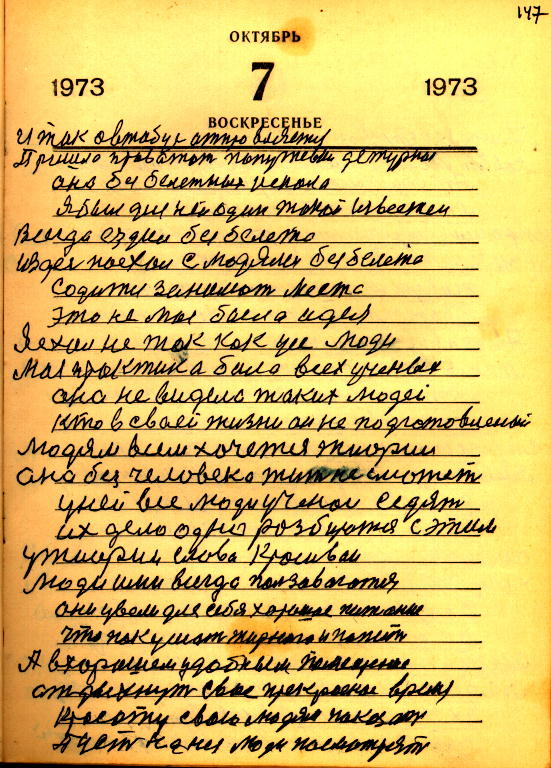 147
ОКТЯБРЬ
1973 7 1973
ВОСКРЕСЕНЬЕ
И так автобус
Пришло
она без белетных
Я был для ней один такой известен
Всегда ездил без белета
Издес поехал с людями без белета
Садится занимат места
Это не мое была идея
Я ехал не так как усе люди
Мая практика была всех ученых
она не видела таких людей
Кто в своей жизни он не подготовленай
Людям всем хочется тиории
она без человека жит не сможет
у ней все люди ученаи седят
их дело одно розбиратся с этим
у тиории слова красиваи
Люди ими всегда ползаваются
они для себя хорошое питание
что покушат жирного и попит
А в хорошем удобным помещение
отдыхнут свое прекрасное время
Красоту свою людям показат
Пуст на них люди посмотрят